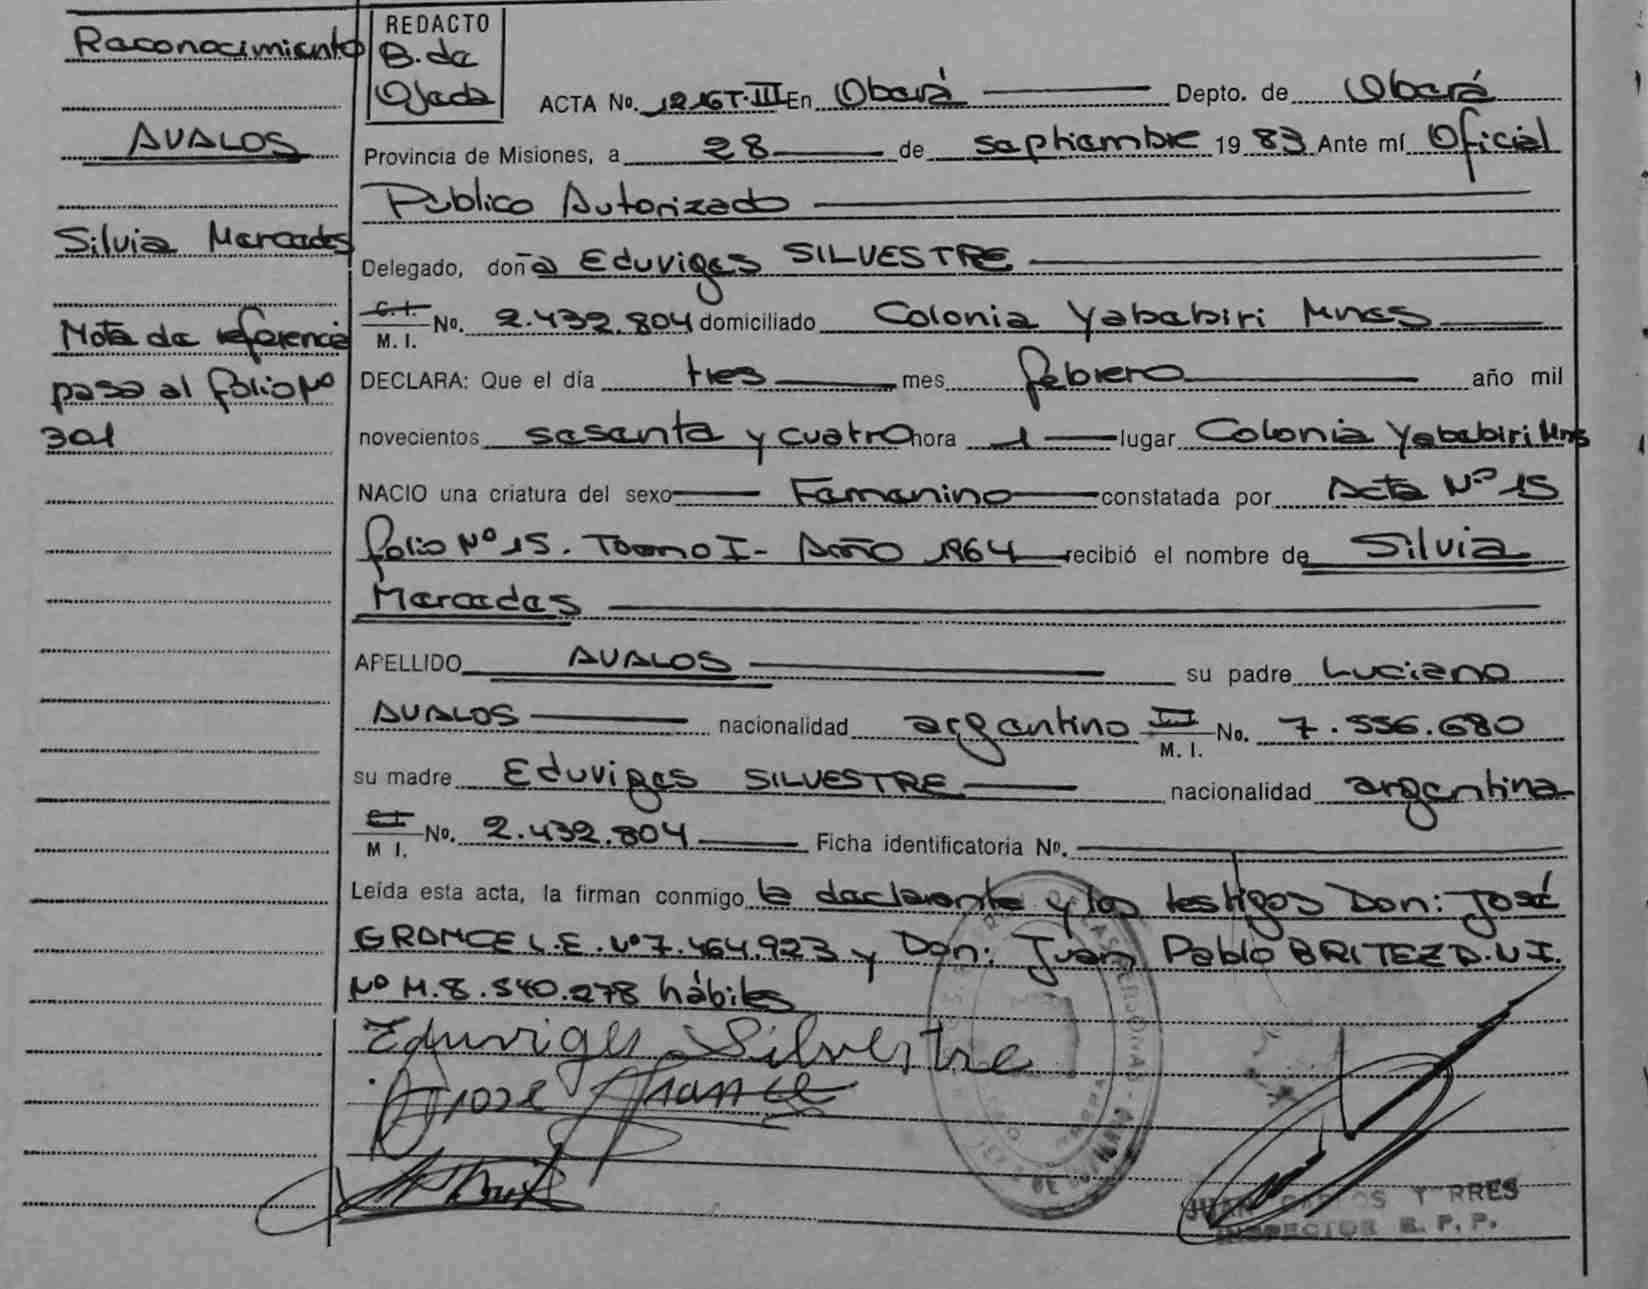 Reconocimiento
AVALOS
Silvia Mercedes
Nota de referencia
pasa al folio Nº
301
REDACTO
B. de
Ojeda
ACTA No. 1216 T. III En Oberá Depto. de Oberá
Provincia de Misiones, a 28 de septiembre 19 83 Ante mí Oficial
Público Autorizado
Delegado, doña Eduviges SILVESTRE
C. I.
M. I. No. 2.432.804 domiciliado Colonia Yabebiri Mnes
DECLARA: Que el día tres mes febrero año mil
novecientos sesenta y cuatro hora 1 lugar Colonia Yabebiri Mns
NACIO una criatura del sexo Femenino constatada por Acta Nº 15
folio Nº 15. Tomo I - Año 1964 recibió el nombre de Silvia
Mercedes
APELLIDO AVALOS su padre Luciano
AVALOS nacionalidad argentino M. I. No. 7.556.680
su madre Eduviges SILVESTRE nacionalidad argentina
M I. No. 2.432.804 Ficha identificatoria No.
Leída esta acta, la firman conmigo la declarante y los testigos Don: José
GRANCE L.E. Nº 7.464.923 y Don: Juan Pablo BRITEZ D.N.I.
Nº M. 8.540.278 hábiles
Eduviges Silvestre
Jose Grance
JUAN CARLOS TORRES
INSPECTOR R. P. P.